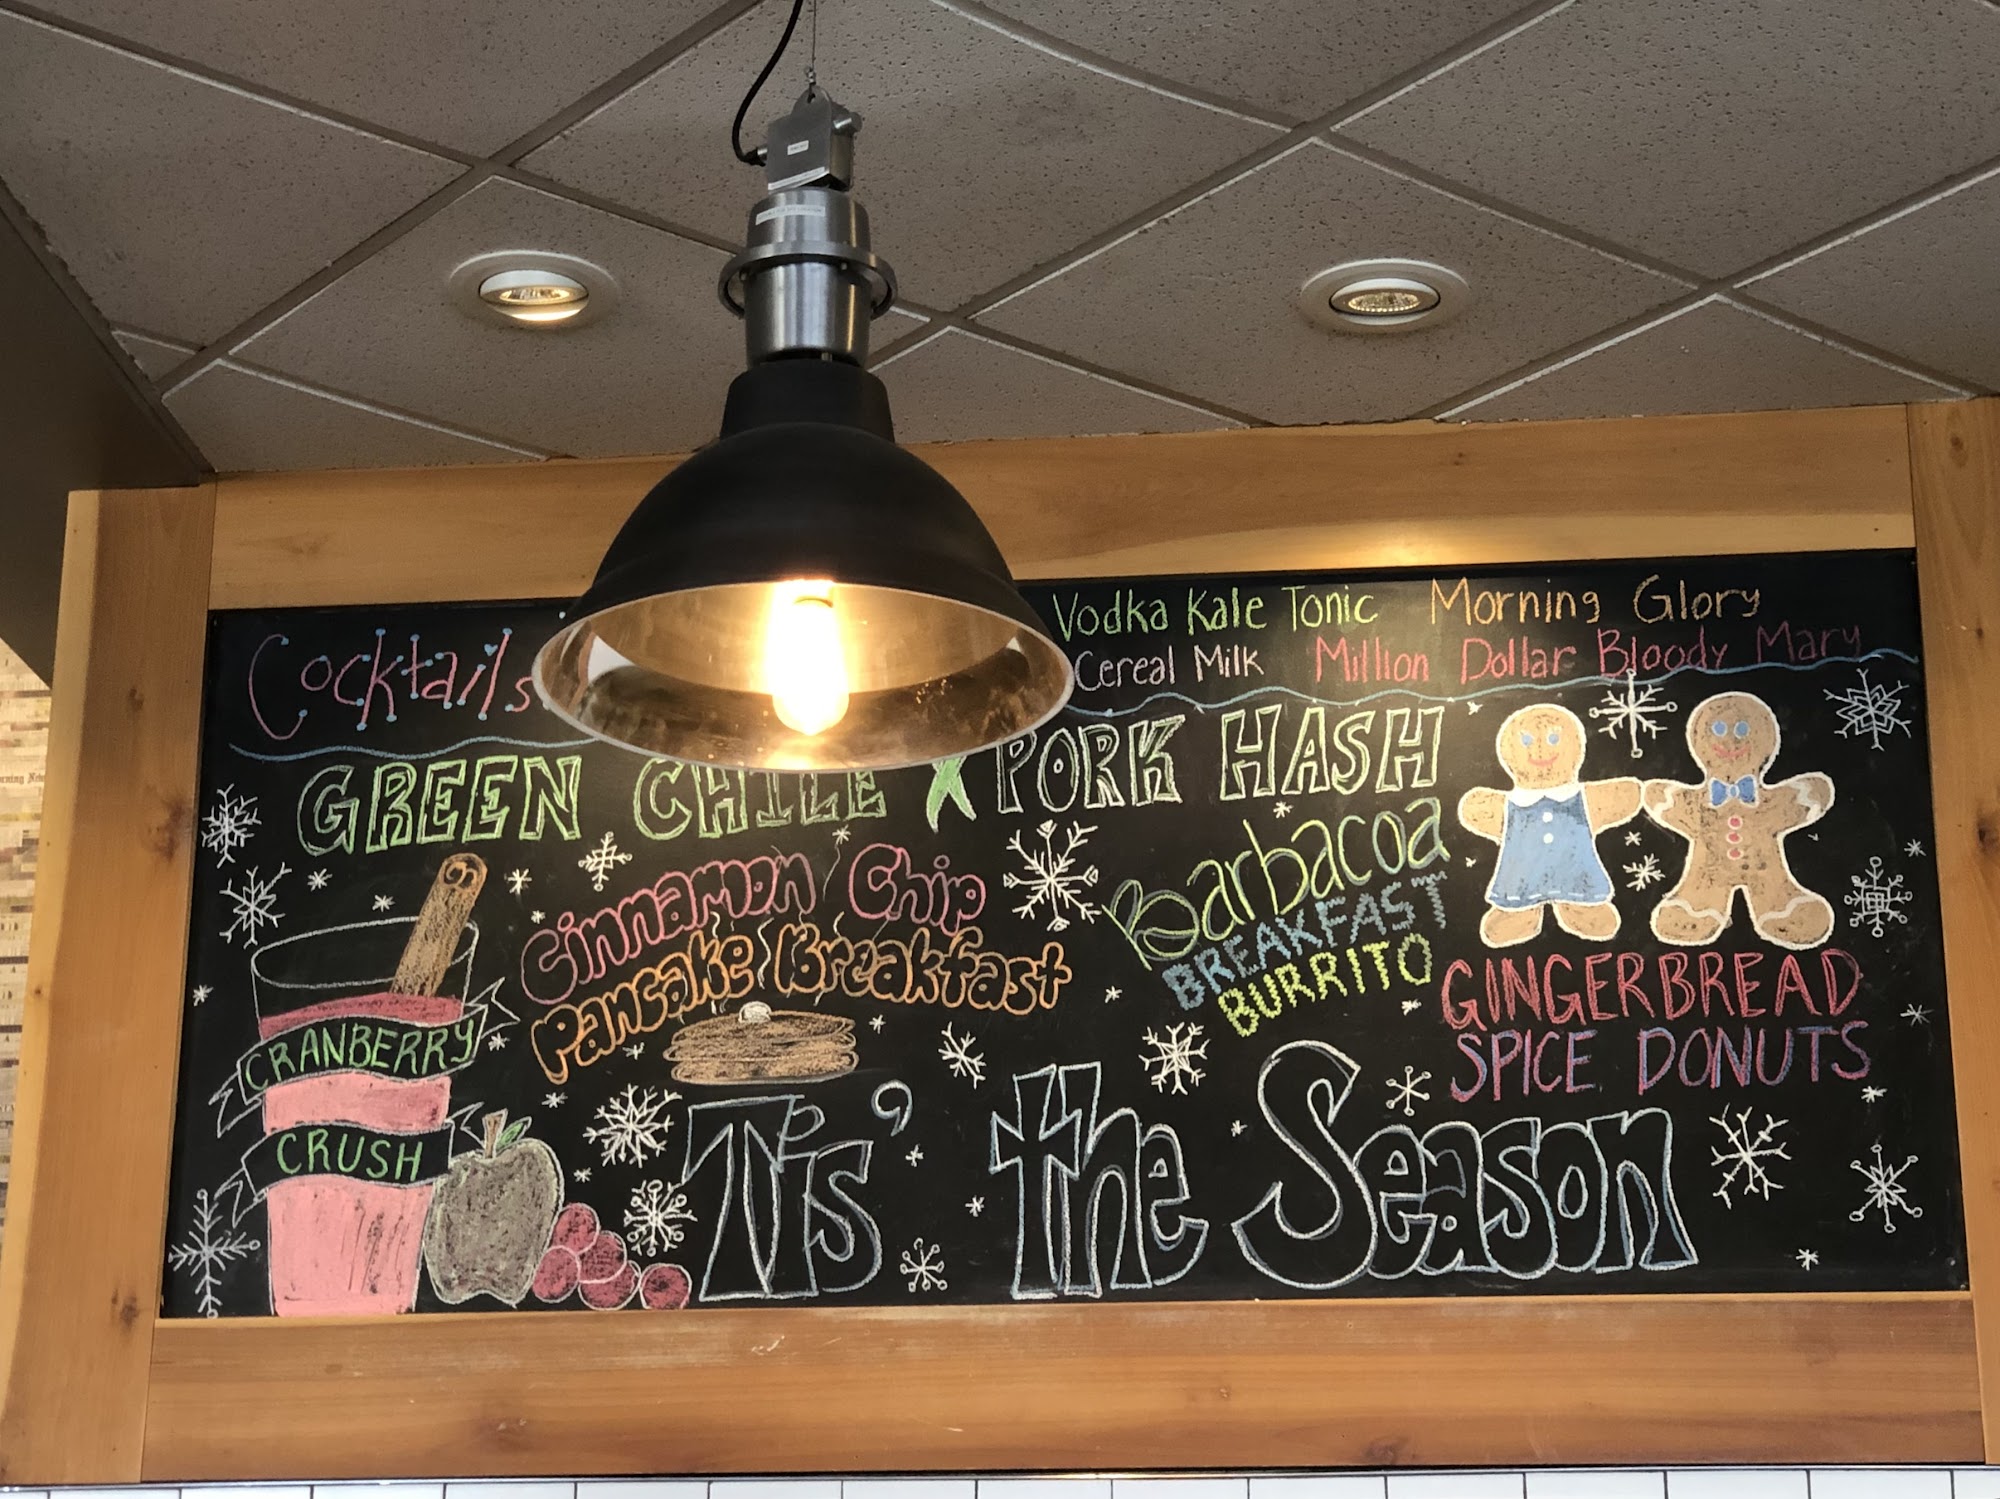 Cocktails
Vodka Kale Tonic Morning Glory
Cereal Milk Million Dollar Bloody Mary
GREEN CHILE PORK HASH
Cinnamon Chip
Pancake Breakfast
Barbacoa
BREAKFAST
BURRITO
GINGERBREAD
SPICE DONUTS
CRANBERRY
CRUSH
Tis' the Season